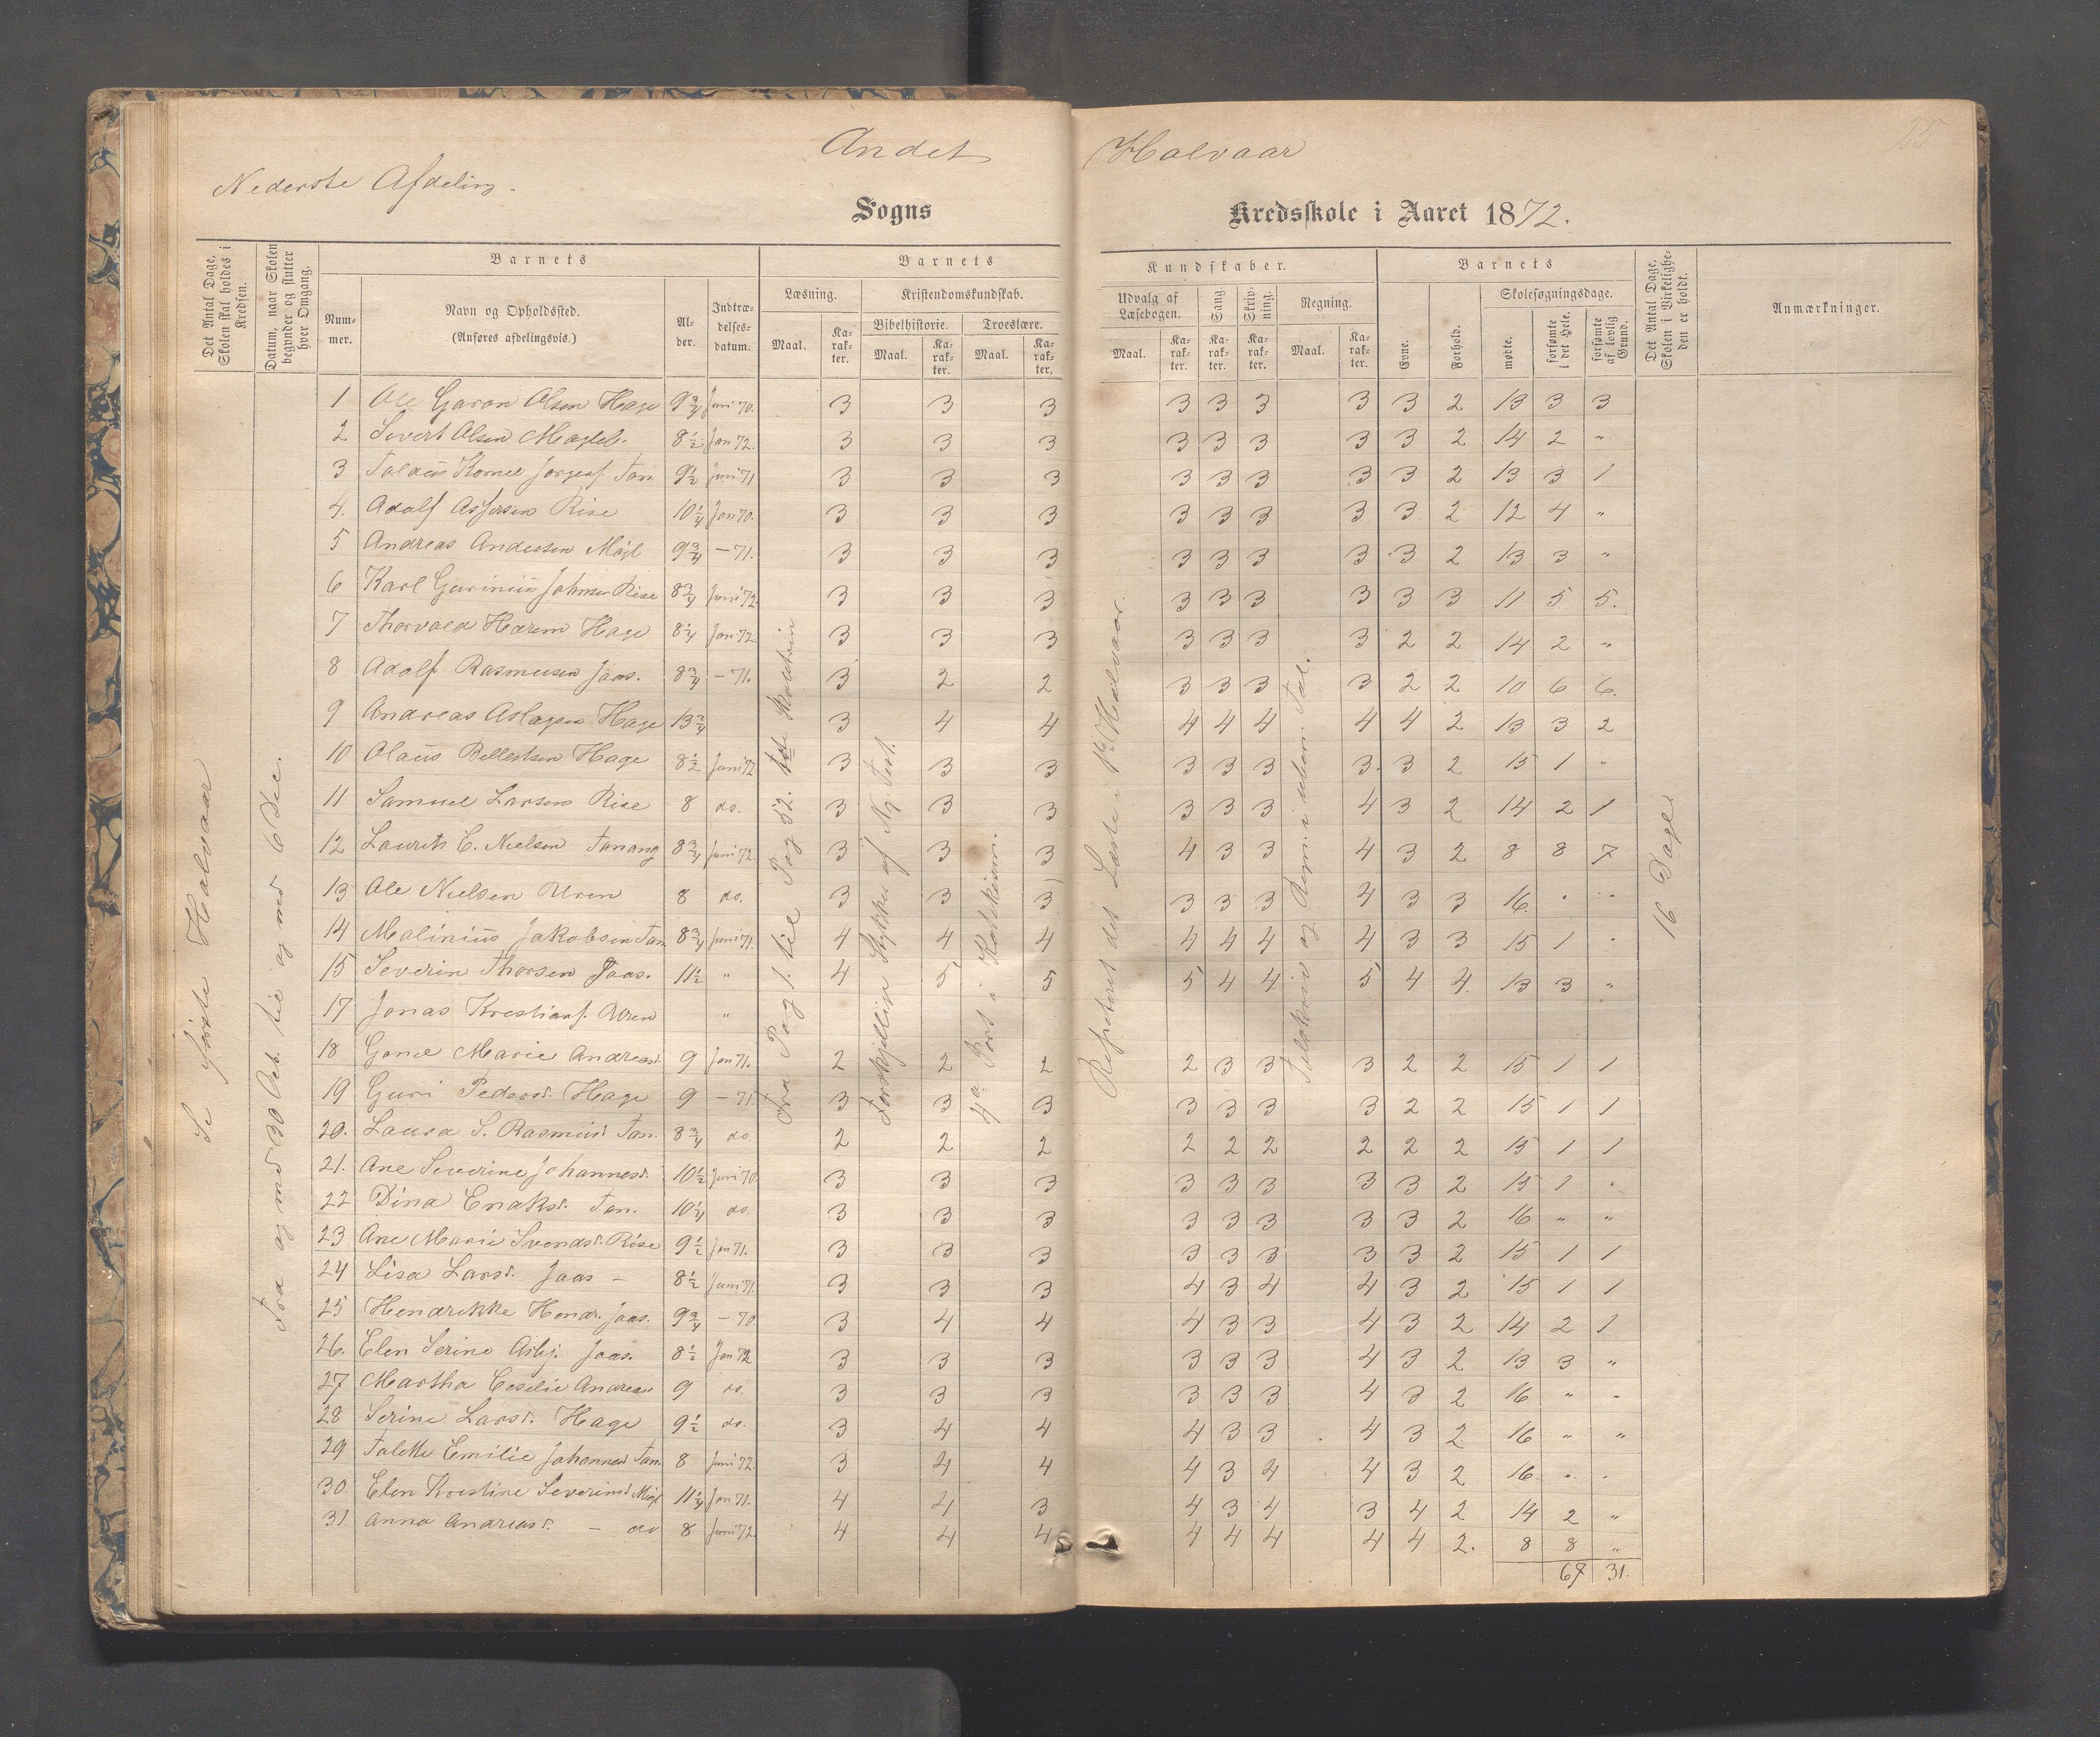 Andet Halvaar
25
Nederste Afdeling.
Sogns Kredsskole i Aaret 1872.
Det Antal Dage, Skolen skal holdes i Kredsen.
Datum, naar Skolen begynder og slutter hver Omgang.
Barnets
Barnets
Kundskaber.
Barnets
Det Antal Dage, Skolen i Virkeligheden er holdt.
Anmærkninger.
Nummer.
Navn og Opholdssted.
(Anføres afdelingsvis.)
Alder.
Indtrædelsesdatum.
Læsning.
Kristendomskundskab.
Bibelhistorie.
Troeslære.
Udvalg af Læsebogen.
Sang.
Skrivning.
Regning.
Evne.
Forhold.
Skolesøgningsdage.
mødte.
forsømte i det Hele.
forsømte af lovlig Grund.
Maal. Karakter. Maal. Karakter. Maal. Karakter. Maal. Karakter. Karakter. Karakter. Maal. Karakter.
Se første Halvaar
Fra og med 30 Oct. til og med 6 Dec.
Fra Pag 1. til Pag 52.
Forskjellige Stykker af Ny Test.
4de Part i Katekism.
Repeteret det Læste i 1ste Halvaar.
Talskriv og Regn. i uben. Tal.
16 Dage
1 Ole Garon Olsen Hage 9 3/4 Juni 70. 3 3 3 3 3 3 3 3 2 13 3 3
2 Sivert Olsen 8 1/2 Jan 72. 3 3 3 3 3 3 3 3 2 14 2 "
3 Jørgens. Tan 9 1/2 Juni 71 3 3 3 3 3 3 3 3 2 13 3 1
4. Adolf Asjersen Rise 10 1/4 Jan 70. 3 3 3 3 3 3 3 3 2 12 4 "
5 Andreas Andersen Møgl 9 3/4 — 71. 3 3 3 3 3 3 3 3 2 13 3 "
6 Karl Gurinius Johnsen Rise 8 3/4 Juni 72. 3 3 3 3 3 3 3 3 3 11 5 5.
7 Thorvald Hdrem Hage 8 1/4 Jan 72 3 3 3 3 3 3 3 2 2 14 2 "
8 Adolf Rasmusen Jaas. 8 3/4 — 71. 3 2 2 3 3 3 3 2 2 10 6 6.
9 Andreas Aslagsen Hage 13 3/4 3 4 4 4 4 4 4 4 2 13 3 2
10 Olaus Bellestsen Hage 8 1/2 Juni 72 3 3 3 3 3 3 3. 3 2 15 1 "
11 Samuel Larsen Rise 8 do. 3 3 3 3 3 3 4 3 2 14 2 1
12 Laurits C. Nielsen Tanang 8 3/4 Juni 72. 3 3 3 4 3 3 4 3 2 8 8 7
13 Ole Nielsen Uren 8 do. 3 3 3 3 3 3 4 3 3 16 " "
14 Malinius Jakobsen Tan 8 3/4 Juni 71. 4 4 4 4 4 4 4 3 3 15 1 "
15 Severin Thorsen Jaas. 11 1/2 " 4 5 5 5 4 4 5 4 4. 13 3 "
17 Jonas Kristians. Uren "
18 Gonel Marie Andreasd. 9 Jan 71. 2 2 2 2 3 3 3 2 2 15 1 1
19 Guri Pedersd. Hage 9 — 71. 3 3 3 3 3 3 3 2 2 15 1 1
20. Laura S. Rasmusd. Tan. 8 3/4 do. 2 2 2 2 2 2 2 2 2 15 1 1
21. Ane Severine Johannesd. 10 1/2 Juni 70. 3 3 3 3 3 3 3 3 2 15 1 "
22 Dina Enoksd. Tan. 10 1/4 do. 3 3 3 3 3 3 3 3 2 16 " "
23 Ane Marie Svendsd. Rise 9 1/2 Jan 71. 3 3 3 3 3 3 3 3 2 15 1 1
24 Lisa Larsd. Jaas — 8 1/2 Juni 71. 3 3 3 4 3 4 4 3 2 15 1 1
25 Hendrikke Hendr. Jaas. 9 3/4 — 70. 3 4 4 4 3 3 4 3 2 14 2 1
26. Elen Serine Asbj. Jaas. 8 1/2 Jan 72 3 3 3 3 3 3 4 3 2 13 3 "
27 Martha Cesilie Andreas 9 do. 3 3 3 3 3 3 4 3 2 16 " "
28 Serine Larsd. Hage 9 1/2 do. 3 4 4 4 3 3 4 3 2 16 " "
29 Talette Emilie Johannesd. Tan. 8 Juni 72. 3 4 4 4 3 4 4 3 2 16 " "
30. Elen Kristine Severinsd. Møgl 11 1/4 Jan 71. 4 4 3 4 3 4 3 4 2 14 2 "
31 Anna Andreasd. — do 8 Juni 72. 4 4 4 4 4 4 4 4 2. 8 8 "
67 31.